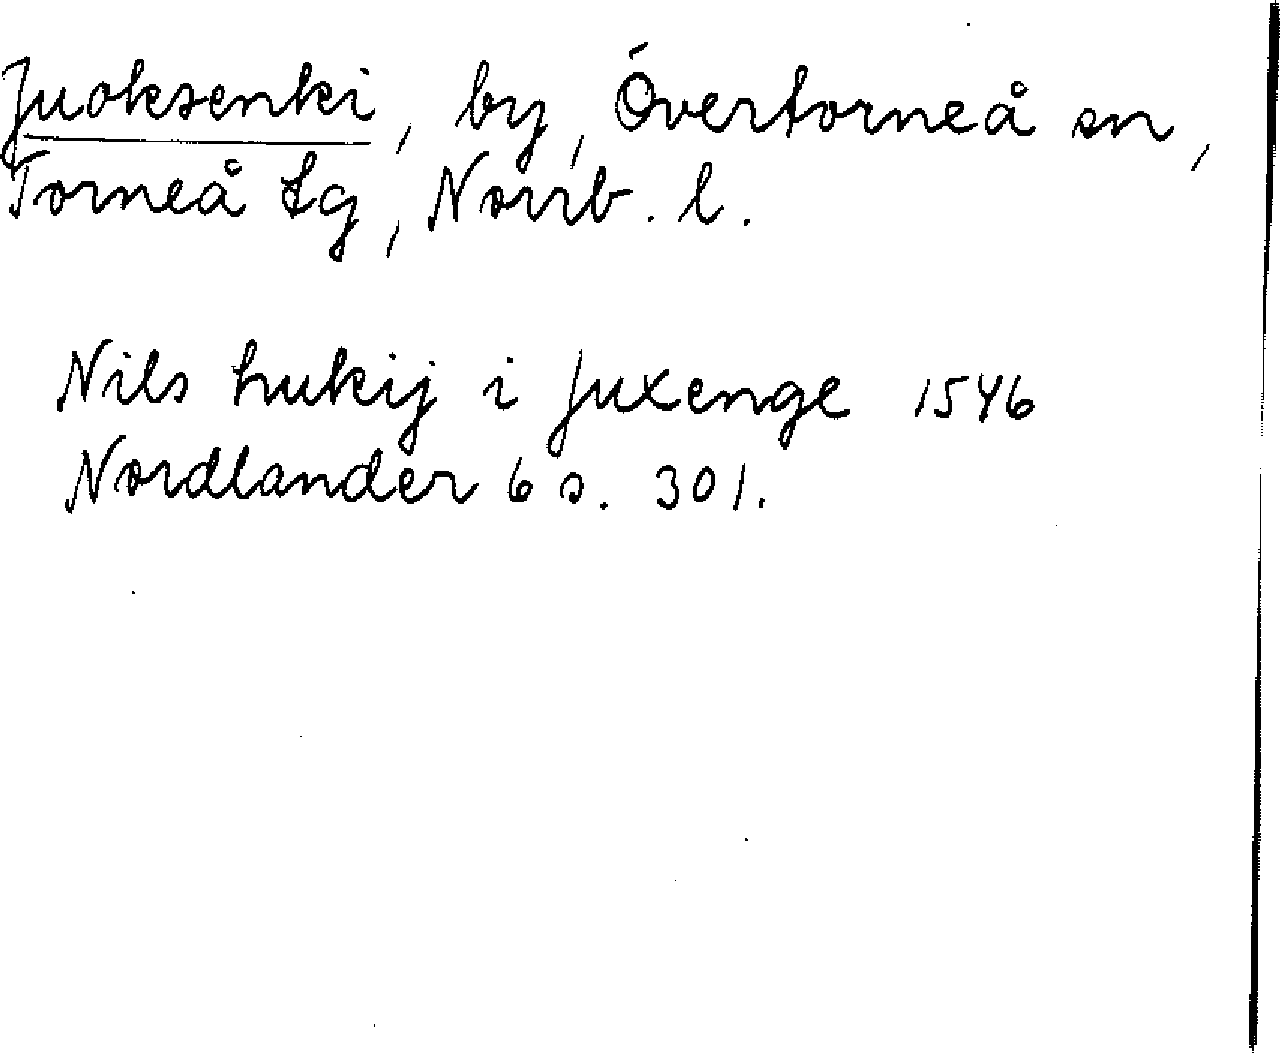 Juoksenki, by, Övertorneå sn,
Torneå tg, Norrb. l.
Nils hukij i Juxenge 1546
Nordlander 6 s. 301.